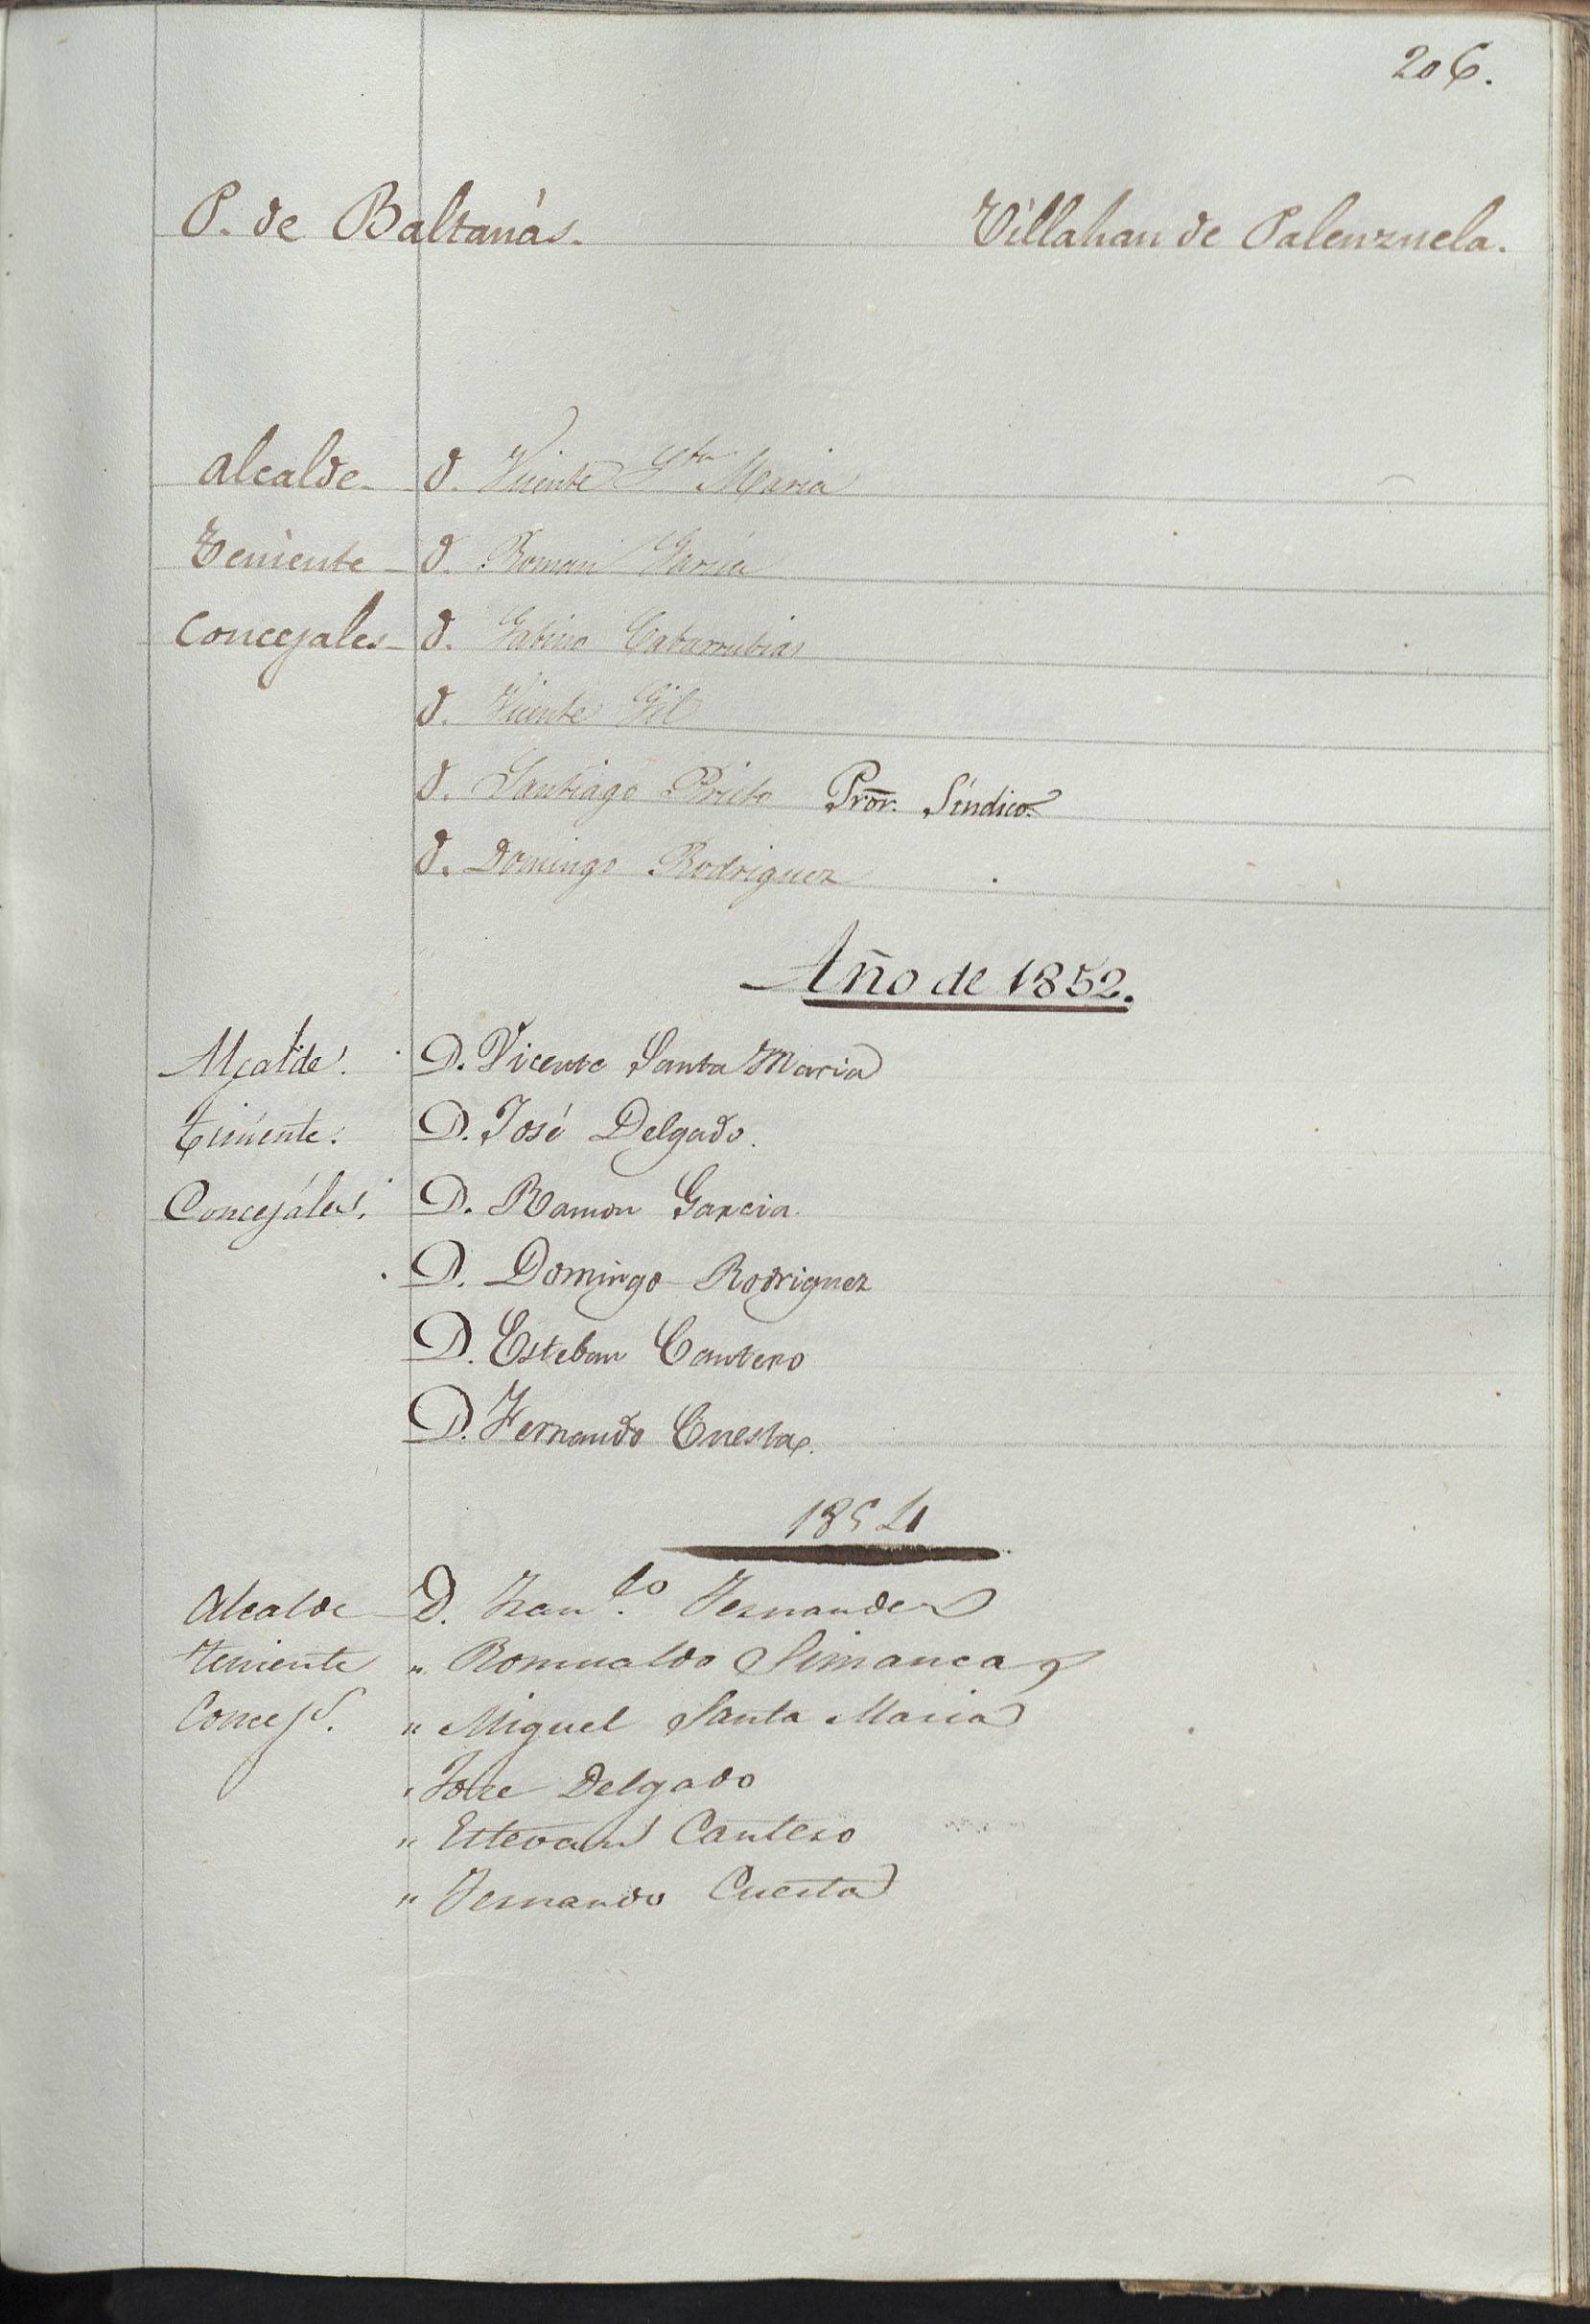 206.
P. de Baltanás. Villahan de Palenzuela.
Alcalde D. Vicente Sta Maria
Teniente D. Roman Garcia
Concejales D. Gabino Cabarrubias
D. Vicente Gil
D. Santiago Prieto Pror. Síndico.
D. Domingo Rodriguez
Año de 1852.
Alcalde. D. Vicente Santa Maria
Teniente. D. José Delgado.
Concejáles. D. Ramon Garcia.
D. Domingo Rodriguez
D. Esteban Cantero
D. Fernando Cuesta.
1854
Alcalde D. Franco. Fernandez
Teniente " Romualdo Simancas
Concejs. " Miguel Santa Maria
" Jose Delgado
" Estevan Cantero
" Fernando Cuesta